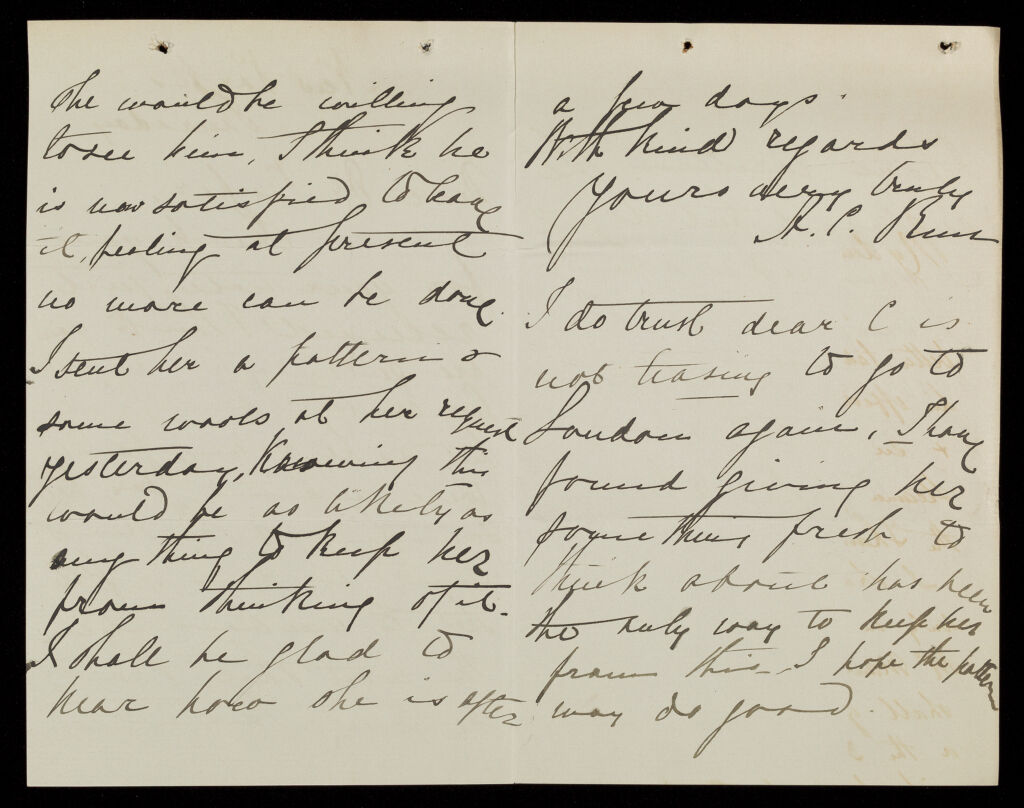 She would be willing
to see him, I think he
is now satisfied to leave
it, feeling at present
no more can be done.
I sent her a pattern &
some wools at her request
yesterday, knowing this
would be as likely as
any thing to keep her
from thinking of it.
I shall be glad to
hear how she is after
a few days.
With kind regards
Yours very truly
A. C.
I do trust dear C is
not teasing to go to
London again, I have
found giving her
something fresh to
think about has been
the only way to keep her
from this. I hope the pattern
may do good.